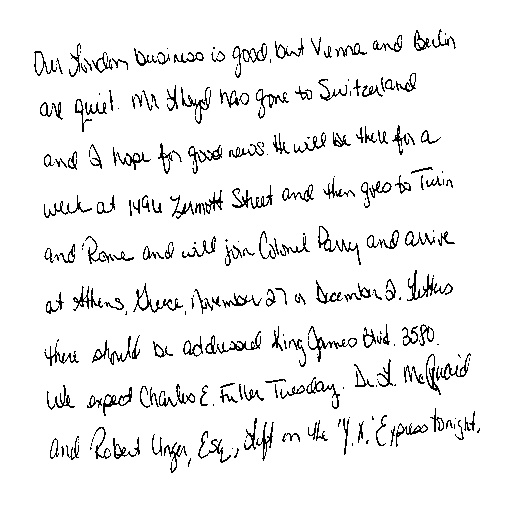 Our London business is good, but Vienna and Berlin
are quiet. Mr Lloyd has gone to Switzerland
and I hope for good news. He will be there for a
week at 1496 Zermott Street and then goes to Turin
and Rome and will join Colonel Parry and arrive
at Athens, Greece, November 27 or December 2. Letters
there should be addressed King James Blvd. 3580.
We expect Charles E. Fuller Tuesday. Dr. L. McQuaid
and Robert Unger, Esq., left on the "Y.X." Express tonight.